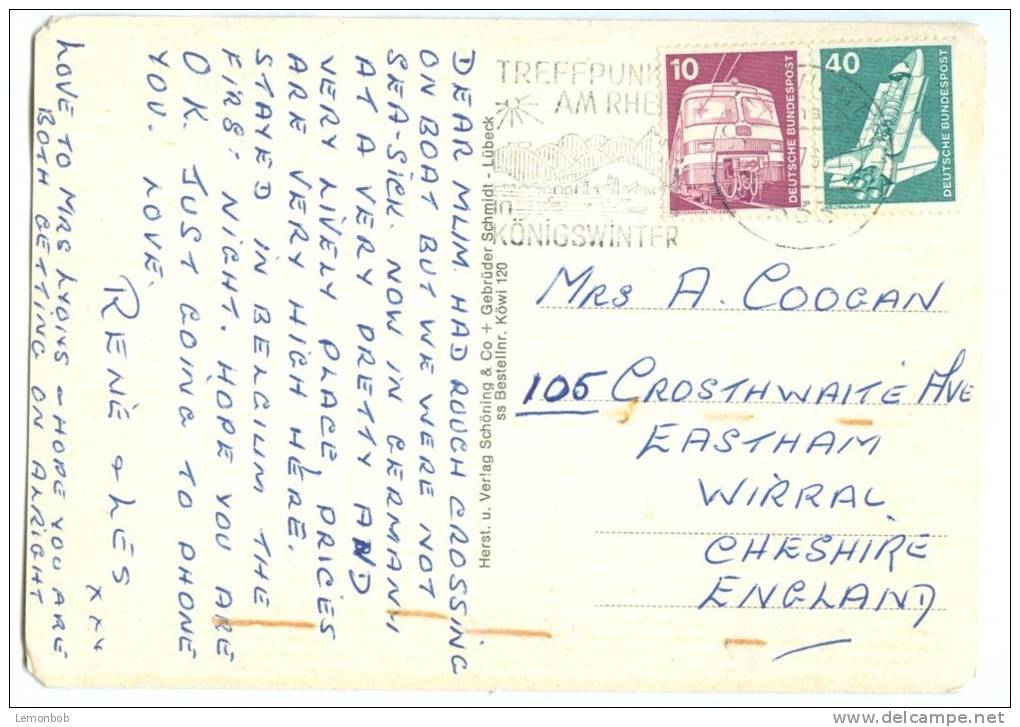 DEAR MUM. HAD ROUGH CROSSING
ON BOAT BUT WE WERE NOT
SEA-SICK. NOW IN GERMANY
AT A VERY PRETTY AND
VERY LIVELY PLACE. PRICES
ARE VERY HIGH HERE.
STAYED IN BELGIUM THE
FIRST NIGHT. HOPE YOU ARE
O.K. JUST GOING TO PHONE
YOU. LOVE.
RENE & LES
xxx
LOVE TO MRS LYONS & HOPE YOU ARE
BOTH GETTING ON ALRIGHT
Herst. u. Verlag Schöning & Co + Gebrüder Schmidt - Lübeck
ss Bestellnr. Köwi 120
TREFFPUNK
AM RHE
in
KÖNIGSWINTER
10
DEUTSCHE BUNDESPOST
40
DEUTSCHE BUNDESPOST
MRS A. COOGAN
105 CROSTHWAITE AVE
EASTHAM
WIRRAL
CHESHIRE
ENGLAND
Lemonbob
delcampe.net